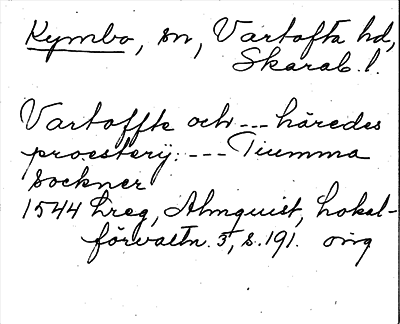 Kymbo, sn, Vartofta hd,
Skarab. l.
Vartoffte och --- häredes
proesterij: --- Tiumma
sockner
1544 Lreg, Almquist, Lokal-
förvaltn. 3, s. 191. orig